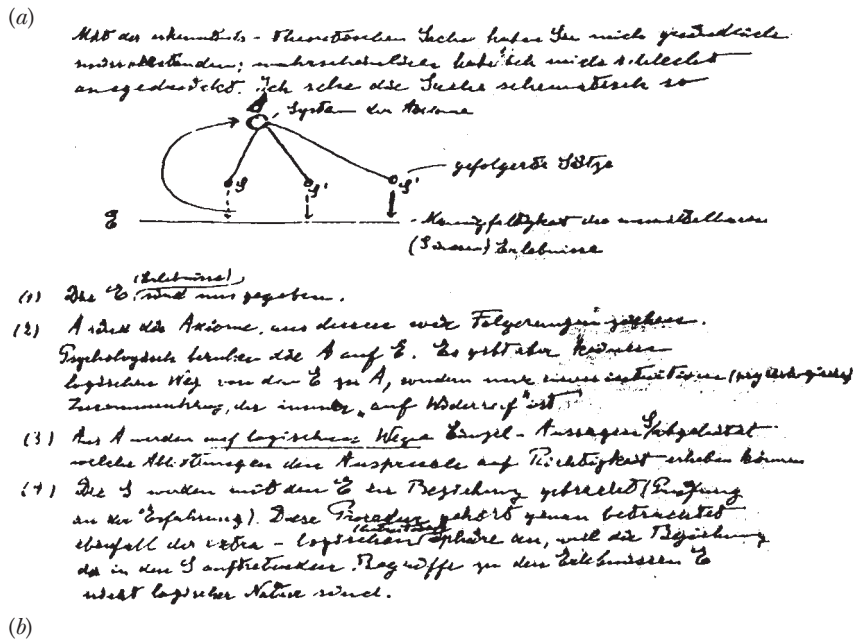 (a)
Mit der erkenntnis-theoretischen Sache haben Sie mich gründlich
missverstanden; wahrscheinlich habe ich mich schlecht
ausgedrückt. Ich sehe die Sache schematisch so
A
System der Axiome
S S' S'
gefolgerte Sätze
E
Mannigfaltigkeit der unmittelbaren
(Sinnes) Erlebnisse
(1) Die E (Erlebnisse) sind uns gegeben.
(2) A sind die Axiome, aus denen wir Folgerungen ziehen.
Psychologisch beruhen die A auf E. Es gibt aber keinen
logischen Weg von den E zu A, sondern nur einen intuitiven (psychologischen)
Zusammenhang, der immer „auf Widerruf" ist.
(3) Aus A werden auf logischem Wege Einzel-Aussagen S abgeleitet
welche Ableitungen den Anspruch auf Richtigkeit erheben können
(4) Die S werden mit den E in Beziehung gebracht (Prüfung
an der Erfahrung). Diese Prozedur gehört genau betrachtet
ebenfall der extra-logischen (intuitiven) Sphäre an, weil die Beziehung
der in den S auftretenden Begriffe zu den Erlebnissen E
nicht logischer Natur sind.
(b)